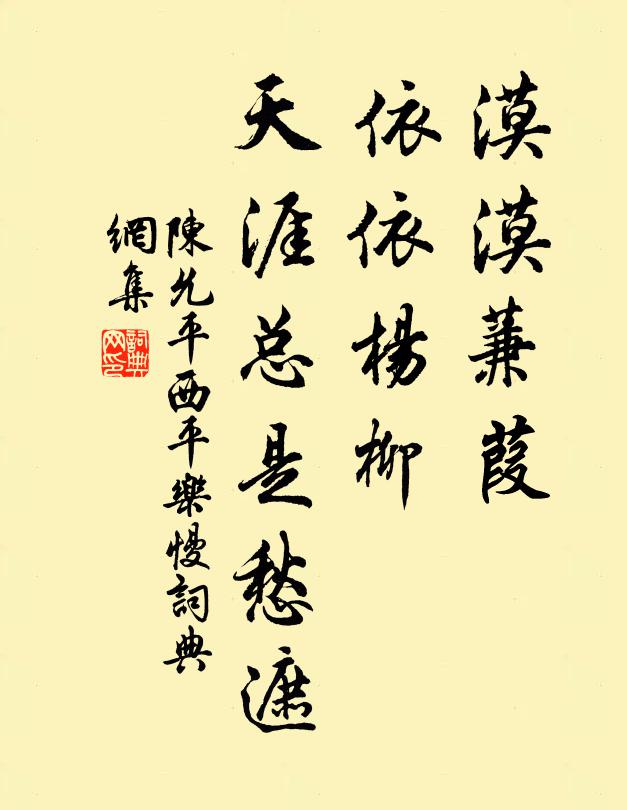 漠漠蒹葭
依依楊柳
天涯总是愁遮
陳允平西平樂慢詞典
網集
詞典
网印